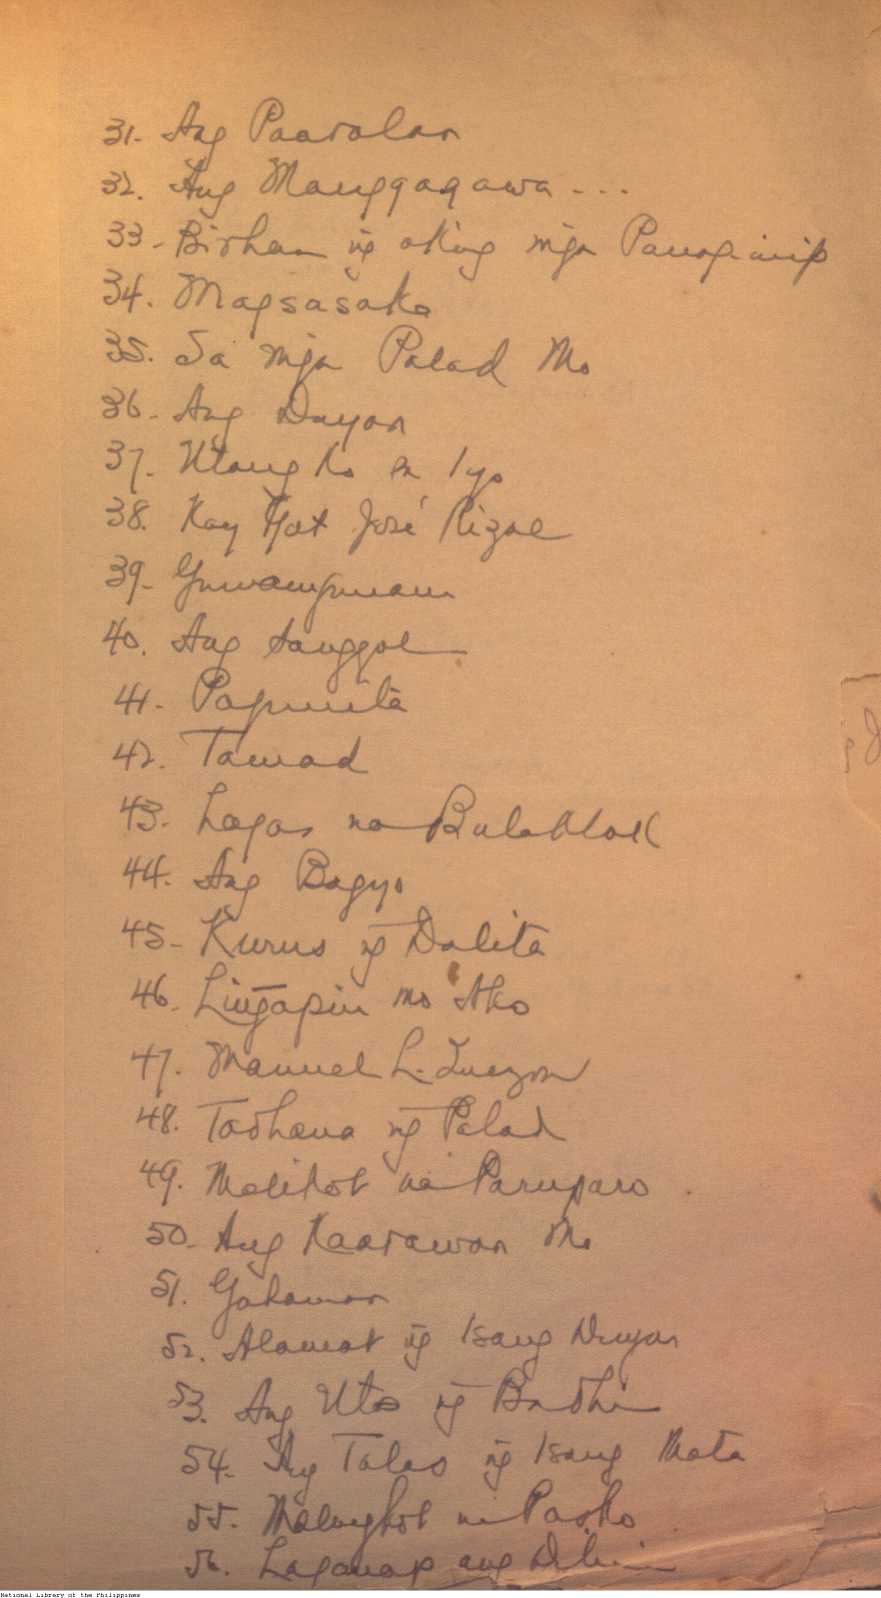 31- Ang Paaralan
32. Ang Manggagawa...
33- Birhen ng aking mga Panaginip
34. Magsasaka
35. Sa mga Palad Mo
36- Ang Duyan
37- Utang ko sa Iyo
38. Kay Gat José Rizal
39- Guwang-guwang
40. Ang tanggol
41- Pagunita
42. Tawad
43- Lagas na Bulaklak
44. Ang Bagyo
45- Kurus ng Dalita
46. Lingapin mo Ako
47. Manuel L. Quezon
48. Tadhana ng Palad
49. Malikot na Paruparo.
50- Ang Kaarawan Mo
51. Gahaman
52. Alamat ng Isang Duyan
53. Ang Utos ng Budhi
54. Ang Talas ng Isang Mata
55. Malungkot na Pasko
56. Laganap ang Dilim
National Library of the Philippines